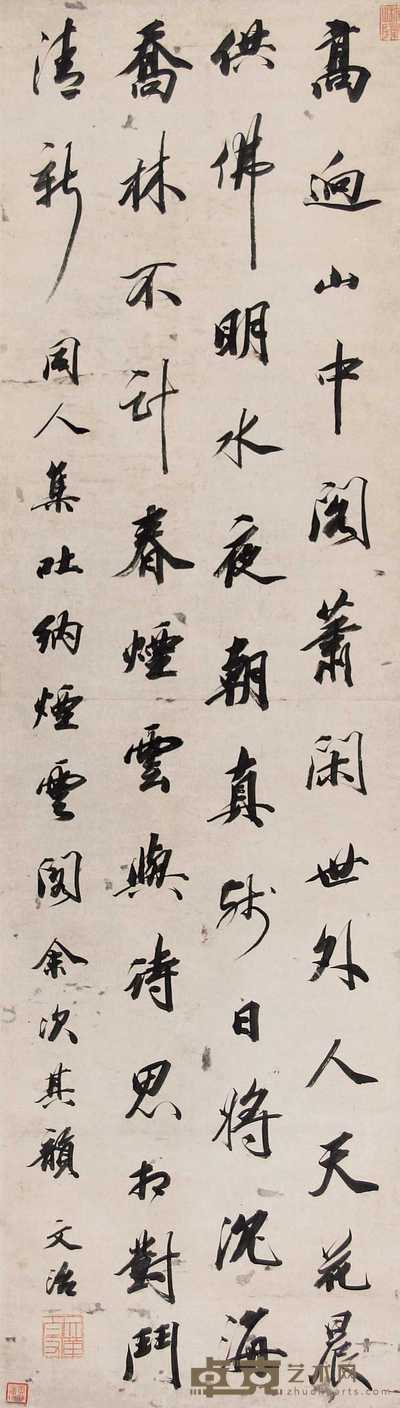 髙逈山中閣蕭閑世外人天花晨
供佛明水夜朝真殘日將沉海
喬林不計春煙雲與詩思相對鬥
清新 同人集吐納煙雲閣余次其韻 文治
卓克艺术网
zhuokearts.com